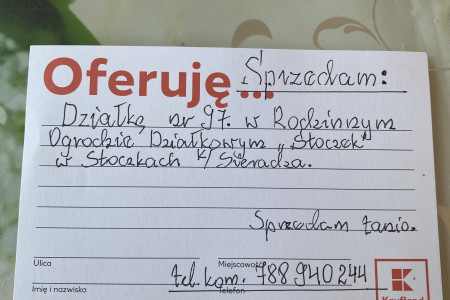 Oferuję... Sprzedam:
Działkę nr 97. w Rodzinnym
Ogrodzie Działkowym „Stoczek"
w Stoczkach k/Sieradza.
Sprzedam tanio.
Ulica
Miejscowość
tel. kom. 788 940 244
Imię i nazwisko
Telefon
Kaufland